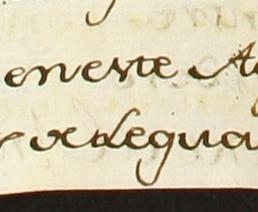 en este A
de legua